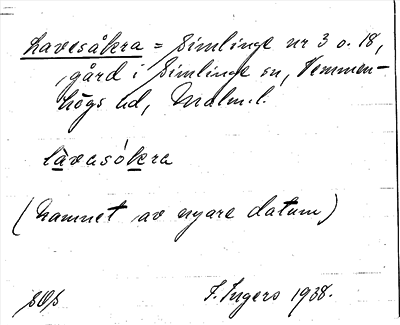 Lavesåkra = Simlinge nr 3 o. 18,
gård i Simlinge sn, Vemmen-
högs hd, Malm.l.
làvasókra
(Namnet av nyare datum)
I. Ingers 1938.